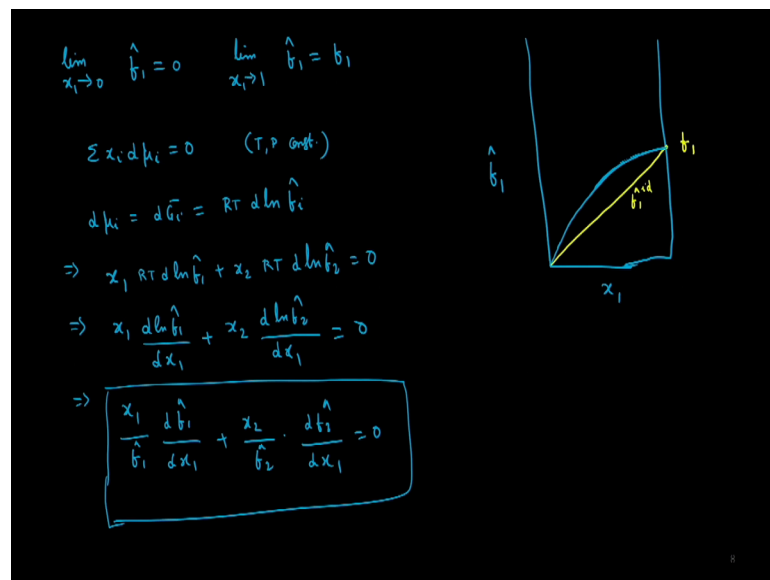 lim x₁→0 f̂₁ = 0 lim x₁→1 f̂₁ = f₁
Σ xᵢ dμᵢ = 0 (T, P const.)
dμᵢ = dG̅ᵢ = RT d ln f̂ᵢ
⇒ x₁ RT d ln f̂₁ + x₂ RT d ln f̂₂ = 0
⇒ x₁ d ln f̂₁ / dx₁ + x₂ d ln f̂₂ / dx₁ = 0
⇒ x₁ / f̂₁ df̂₁ / dx₁ + x₂ / f̂₂ · df̂₂ / dx₁ = 0
f₁
f̂₁
f̂₁ⁱᵈ
x₁
8